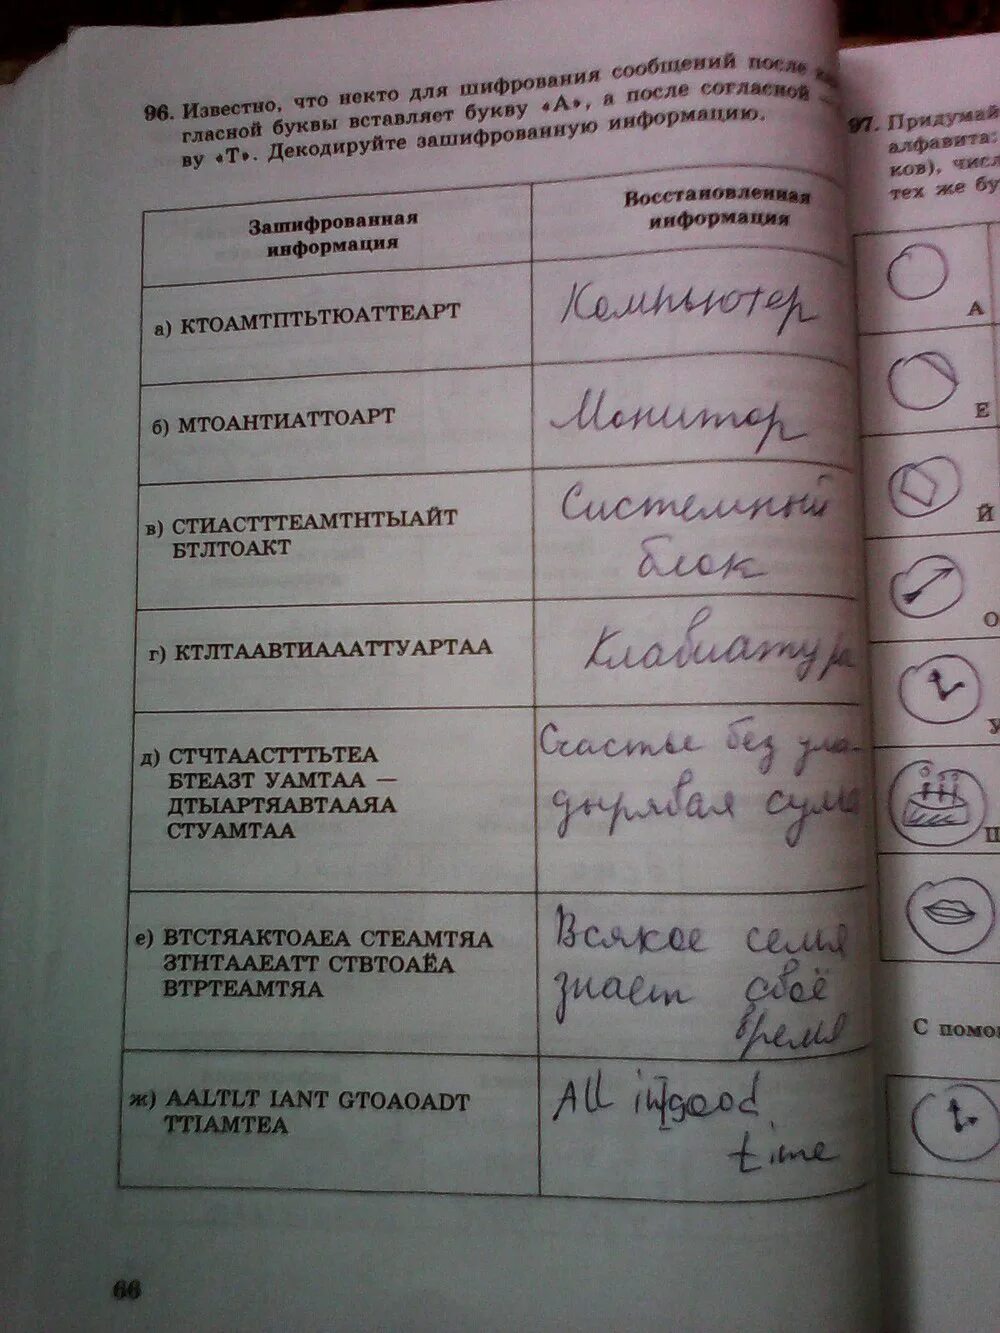 96. Известно, что некто для шифрования сообщений после
гласной буквы вставляет букву «А», а после согласной —
ву «Т». Декодируйте зашифрованную информацию.
Зашифрованная
информация
Восстановленная
информация
а) КТОАМТПТЬТЮАТТЕАРТ
Компьютер
б) МТОАНТИАТТОАРТ
Монитор
в) СТИАСТТТЕАМТНТЫАЙТ
БТЛТОАКТ
Системный
блок
г) КТЛТААВТИАААТТУАРТАА
Клавиатура
д) СТЧТААСТТТЬТЕА
БТЕАЗТ УАМТАА —
ДТЫАРТЯАВТААЯА
СТУАМТАА
Счастье без ума-
дырявая сума
е) ВТСТЯАКТОАЕА СТЕАМТЯА
ЗТНТААЕАТТ СТВТОАЁА
ВТРТЕАМТЯА
Всякое семя
знает своё
время
ж) AALTLT IANT GTOAOADT
TTIAMTEA
All in good
time
66
97. Придумай
алфавита:
ков), чис
тех же бу
А
Е
Й
О
У
С помо